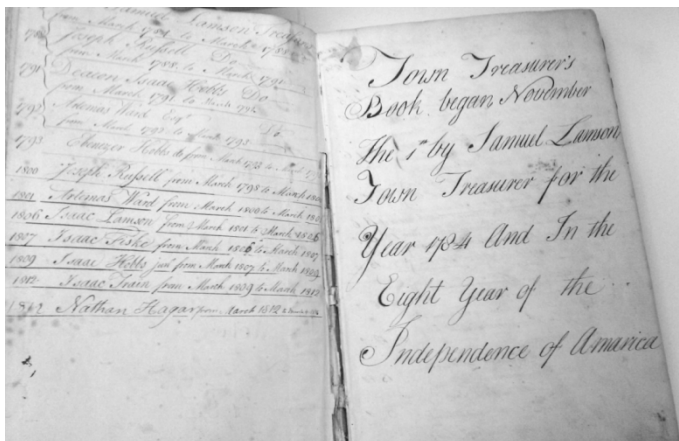 Samuel Lamson
from March 1784 to March 1788
Joseph Russell Do
from March 1788 to March 1791
1791 Deacon Isaac Hobbs Do
from March 1791 to
1792 Artemas Ward Esqr
from March 1792 to March 1793 Do
1793 Ebenezer Hobbs do from March 1793 to March
1800 Joseph Russell from March 1798 to March
1801 Artemas Ward from March 1800 to March
1806 Isaac Lamson from March 1801 to March 1806
1807 Isaac Fiske from March 1806 to March 1807
1809 Isaac Hobbs junr from March 1807 to March
1812 Isaac Train from March 1809 to March 1812
Nathan Hagar from March 1812
Town Treasurer's
Book began November
the 1 by Samuel Lamson
Town Treasurer for the
Year 1784 And In the
Eight Year of the
Independence of Amarica